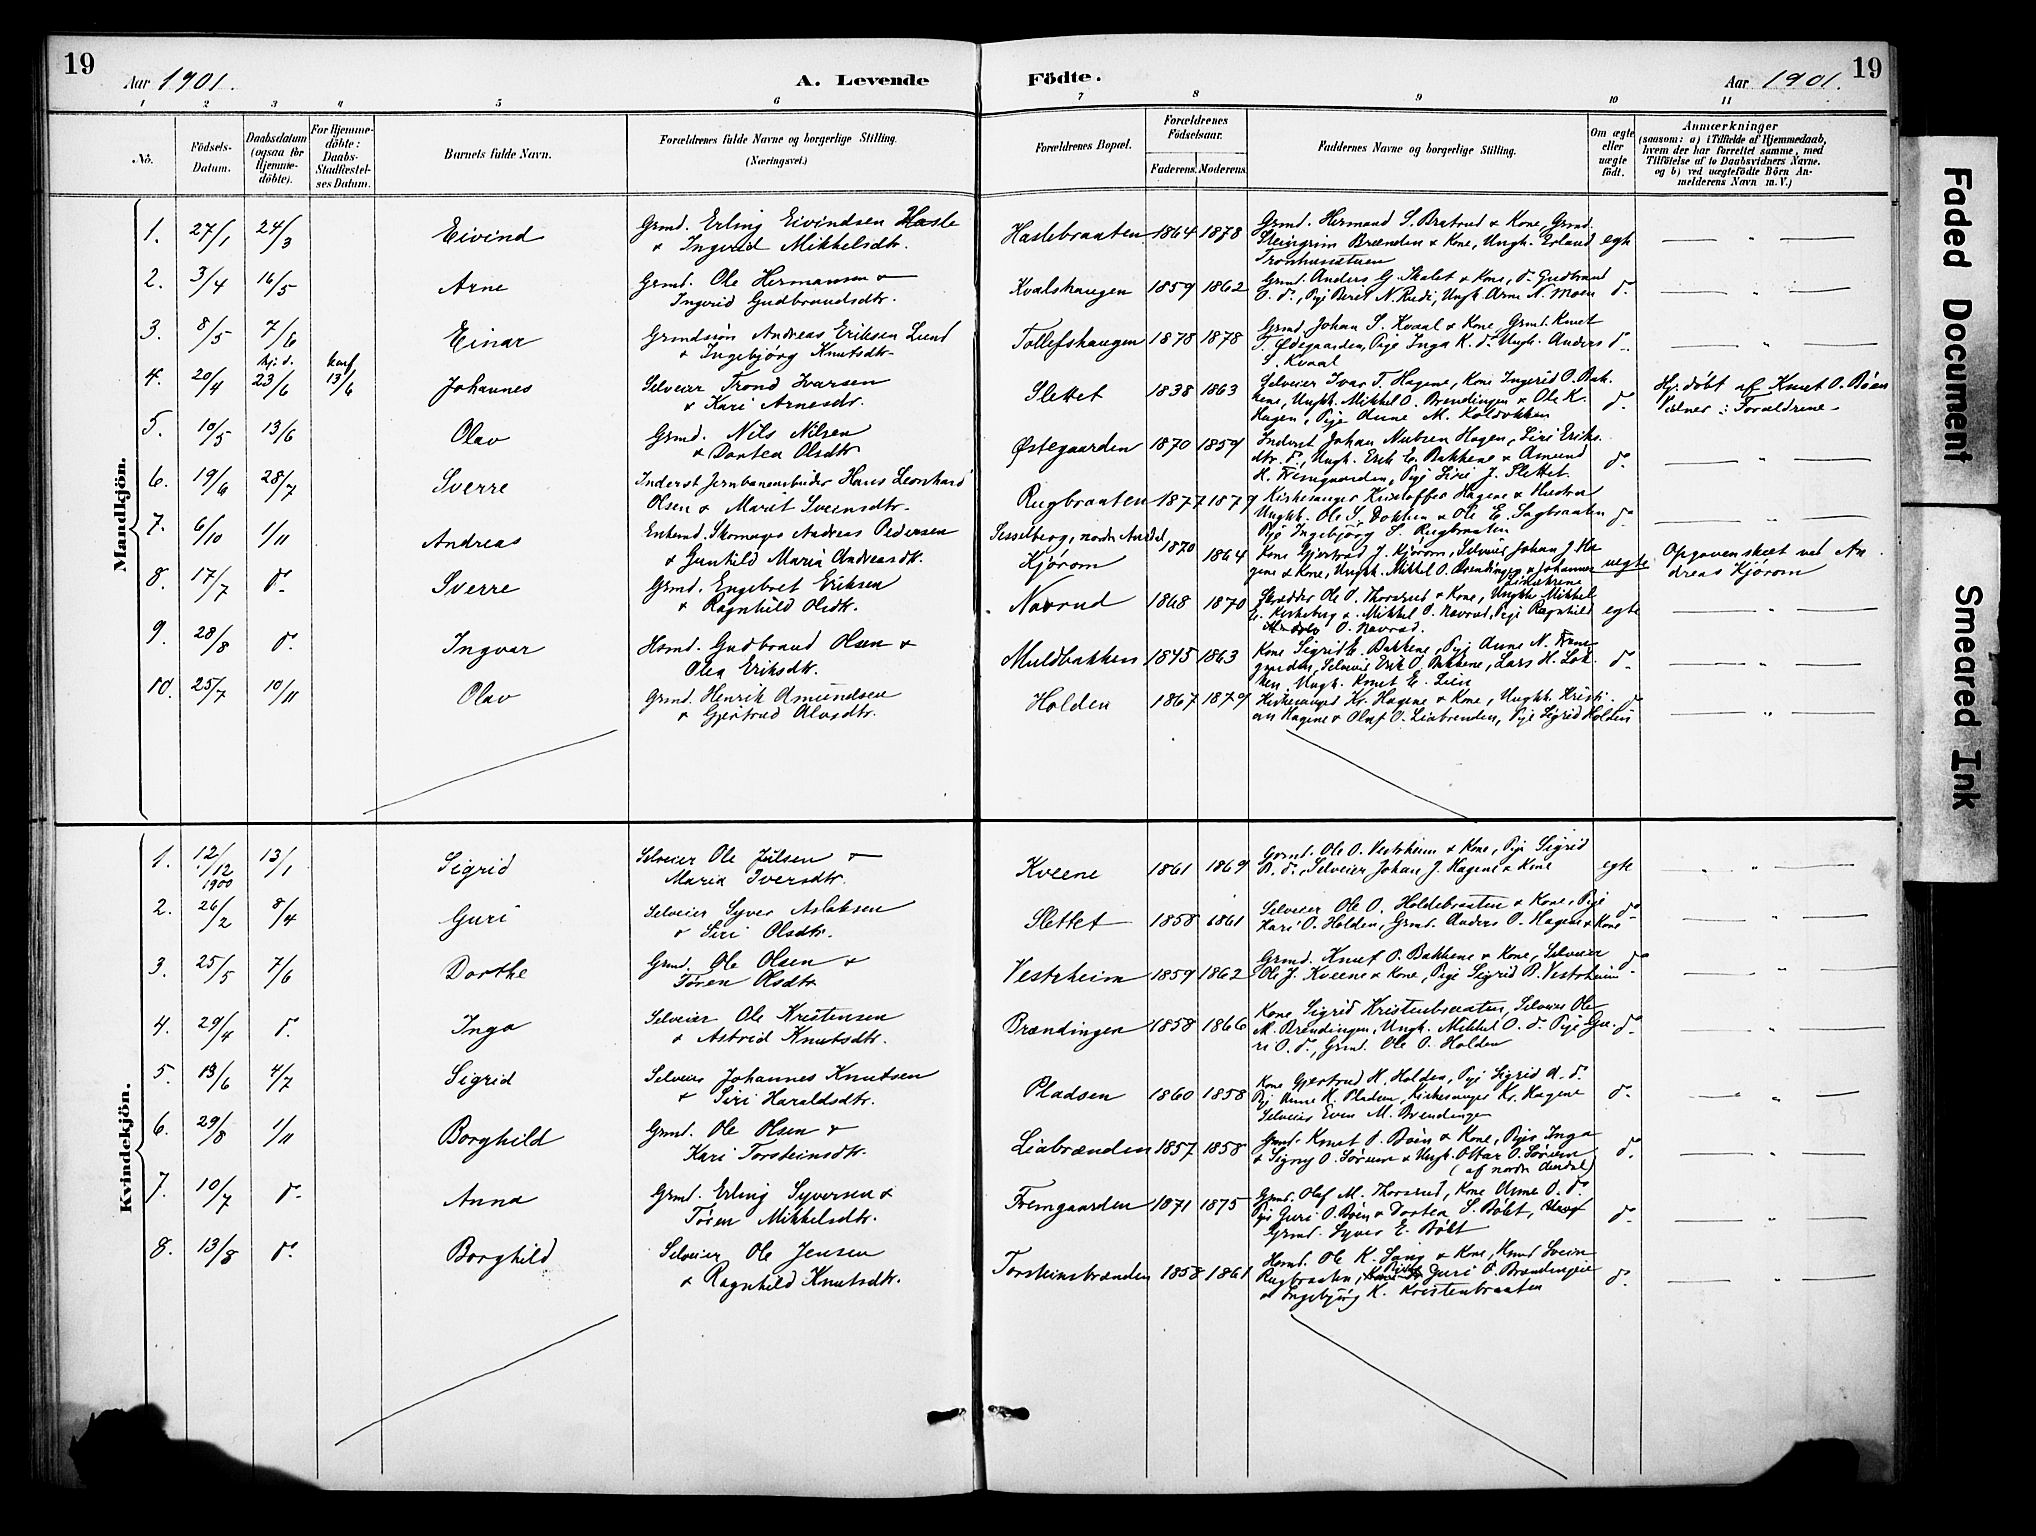 19
Aar 1901.
A. Levende
Födte.
Aar 1901.
19
1 2 3 4 5 6 7 8 9 10 11
No.
Födsels-Datum.
Daabsdatum (ogsaa for Hjemme-döbte).
For Hjemme-döbte: Daabs-Stadfæstel-ses Datum.
Barnets fulde Navn.
Forældrenes fulde Navne og borgerlige Stilling.
(Næringsvei.)
Forældrenes Bopæl.
Forældrenes Födselsaar.
Faderens. Moderens.
Faddernes Navne og borgerlige Stilling.
Om ægte eller uægte födt.
Anmærkninger
(saasom: a) i Tilfælde af Hjemmedaab,
hvem der har forrettet samme, med
Tilföielse af to Daabsvidners Navne.
og b) ved uægtefödte Börn An-
melderens Navn m. V.)
Mandkjön.
1. 27/1 24/3 Eivind
Grmd. Erling Eivindsen Hasle
& Ingerid Mikkelsdtr.
Haslebraaten 1864 1878
Grmd. Hermand S. Bratrud & Kone, Grmd.
Steingrim Brænden & Kone, Ungk. Erland
Tronhusstuen
egte
2. 3/4 16/5 Arne
Grmd. Ole Hermansen &
Ingerid Gudbrandsdtr.
Kvalshaugen 1859 1862
Grmd. Anders G. Skalet & Kone, do Gudbrand
O. do, Pige Beret N. Rudi, Ungk. Arne N. Moen
do
3. 8/5 7/6 Einar
Grmdsøn Andreas Eriksen Lund
& Ingebjørg Knutsdtr.
Tollefshaugen 1878 1878
Grmd. Johan S. Kvaal & Kone, Grmd. Knut
T. Ødegaarden, Pige Inga K. do Ungk. Anders
S. Kvaal
do
4. 20/4 Hj. d. 23/6 konf 13/6 Johannes
Selveier Trond Ivarsen
& Kari Arnesdtr.
Slettet 1838 1863
Selveier Ivar T. Hagene, Kone Ingerid O. Bak-
kene, Ungk. Mikkel O. Brendingen & Ole K.
Hagen, Pige Anne M. Koldokken
do
Hj. døbt af Knut O. Bøen
Vidner: Forældrene
5. 10/5 13/6 Olav
Grmd. Nils Nilsen
& Dortea Olsdtr.
Østegaarden 1870 1859
Inderst Johan Hagen, Siri Eriks-
dtr. do, Ungk. Erik E. Bakkene & Amund
H. Fremgaarden, Pige Siri J. Slettet
do
6. 19/6 28/7 Sverre
Inderst Jernbanearbeider Hans Leonhard
Olsen & Marit Sveinsdtr.
Rugbraaten 1877 1879
Kirkesanger Kristoffer Hagene & Hustru
Ungkk. Ole S. Dokken & Ole E. Sagbraaten
Pige Ingebjörg S. Rugbraaten
do
7. 6/10 1/11 Andreas
Enkemd. Skomager Andreas Pedersen
& Gunhild Maria Andreasdtr.
Sesselberg, nordre Aurdal
Kjørom
1870 1864
Kone Gjertrud J. Kjørom, Selveier Johan J. Ha-
gene & Kone, Ungkk. Mikkel O. Brendingen & Johannes
uegte
Opgaven skeet ved An-
dreas Kjörom
8. 17/7 do Sverre
Grmd. Engebret Eriksen
& Ragnhild Olsdtr.
Novrud 1868 1870
Skredder Ole O. Thorsrud & Kone, Ungkk. Mikkel
E. Kirkeberg & Mikkel O. Navrud, Pige Ragnhild
O. Navrud.
egte
9. 28/8 do Ingvar
Hsmd. Gudbrand Olsen &
Olea Eriksdtr.
Muldbakken 1845 1863
Kone Sigrid E. Bakkene, Pige Anne N. Frem-
gaarden, Selveier Erik O. Bakkene, Lars H. Lok-
ken, Ungk. Knut E. Lien
do
10. 25/7 10/11 Olav
Grmd. Henrik Amundsen
& Gjertrud Olvsdtr.
Holden 1867 1879
Kirkesanger Kr. Hagene & Kone, Ungkk. Kristi-
an Hagene & Olaf O. Liabrenden, Pige Sigrid Holden
do
Kvindekjön.
1. 12/12 1900 13/1 Sigrid
Selveier Ole Julsen &
Maria Iversdtr.
Kveene 1861 1869
Grmd. Ole O. Vestrheim & Kone, Pige Sigrid
R. do, Selveier Johan J. Hagene & Kone
egte
2. 26/2 8/4 Guri
Selveier Syver Aslaksen
& Siri Olsdtr.
Slettet 1858 1861
Selveier Ole O. Holdebraaten & Kone, Pige
Kari O. Holden, Grmd. Anders O. Hagene & Kone
do
3. 25/5 7/6 Dorthe
Grmd. Ole Olsen &
Tören Olsdtr
Vestrheim 1859 1862
Grmd. Knut O. Bakkene & Kone, Selveier
Ole J. Kveene & Kone, Pige Sigrid R. Vestrheim
do
4. 29/4 do Inga
Selveier Ole Kristensen
& Astrid Knutsdtr.
Brændingen 1858 1866
Kone Sigrid Kristenbraaten, Selveier Ole
M. Brendingen, Ungk. Mikkel O. do Pige Gu-
ri O. do, Grmd. Ole O. Holden
do
5. 13/6 4/7 Sigrid
Selveier Johannes Knutsen
& Siri Haraldsdtr.
Pladsen 1860 1858
Kone Gjertrud H. Holden, Pige Sigrid A. do
Pige Anne K. Pladsen, Kirkesanger Kr. Hagene
Selveier Even M. Brendingen
do
6. 29/8 1/11 Borghild
Grmd. Ole Olsen &
Kari Torsteinsdtr.
Liabrænden 1857 1858
Grmd. Knut O. Bøen & Kone, Piger Inga
& Signy O. Sørum & Ungk. Ottar O. Sørum
(af nordre Aurdal)
do
7. 10/7 do Anna
Grmd. Erling Syversen &
Tören Mikkelsdtr.
Fremgaarden 1871 1875
Grmd. Olaf M. Thorsrud, Kone Anne O. do
Pige Guri O. Bøen & Dortea S. Bölet,
Grmd. Syver E. Bölet
do
8. 13/8 do Borghild
Selveier Ole Jensen
& Ragnhild Knutsdtr.
Torsteinsbrænden 1858 1861
Hsmd. Ole K. Saug & Kone, Hsmd Svein
Rugbraaten, Guri O. Brændingen
& Ingebjörg K. Kristenbraaten
do
Faded Document
Smeared Ink